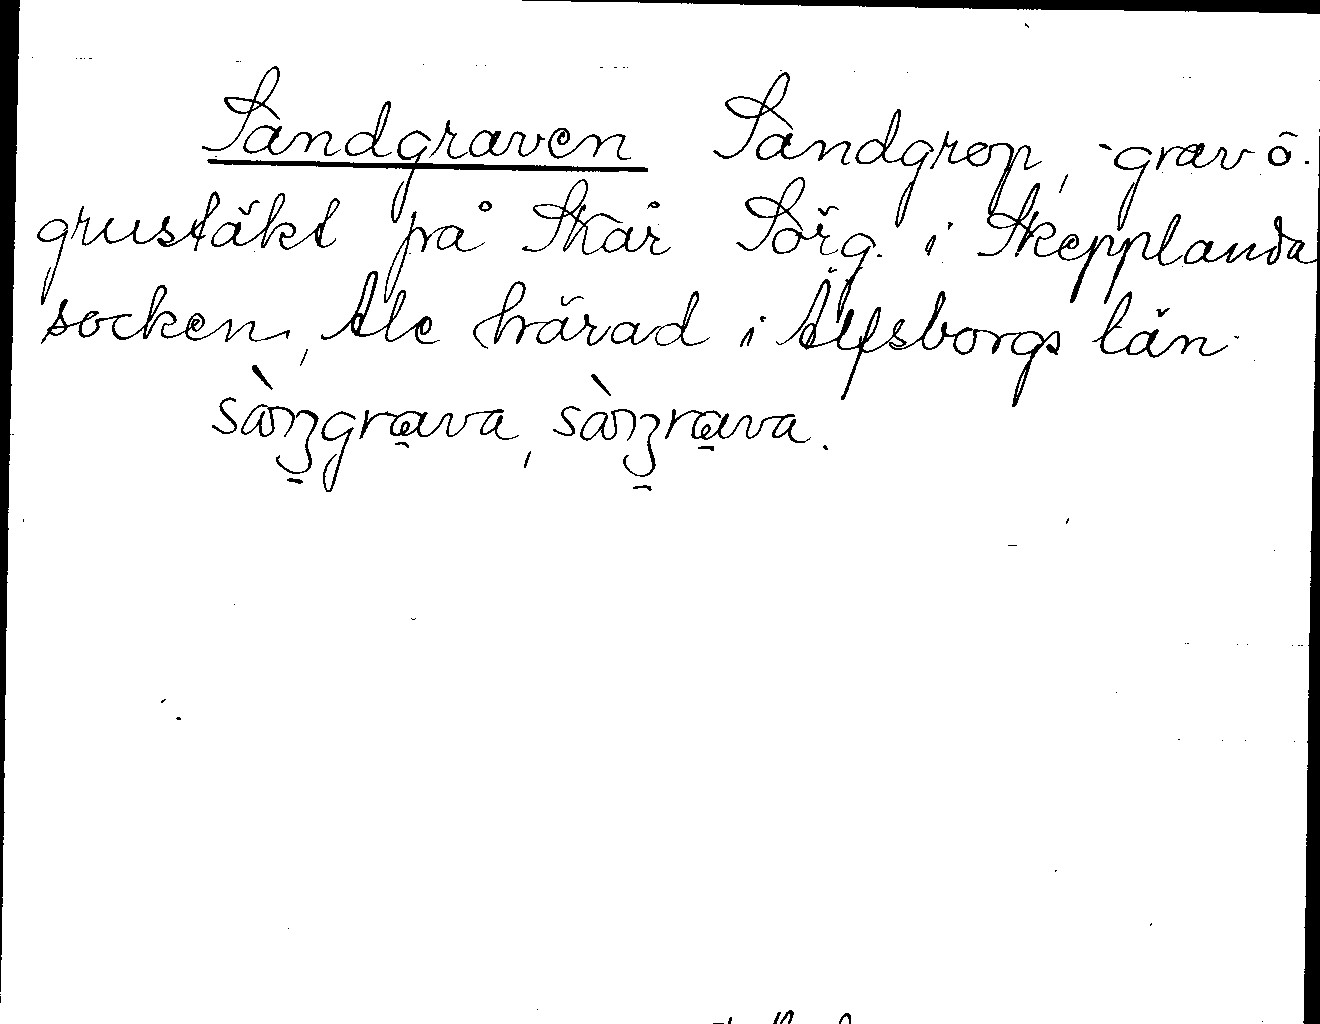 Sandgraven Sandgrop, -grav o.
grustäkt på Skår Sörg. i Skepplanda
socken, Ale härad i Älfsborgs län.
sàn̠grava, sàn̠rava.